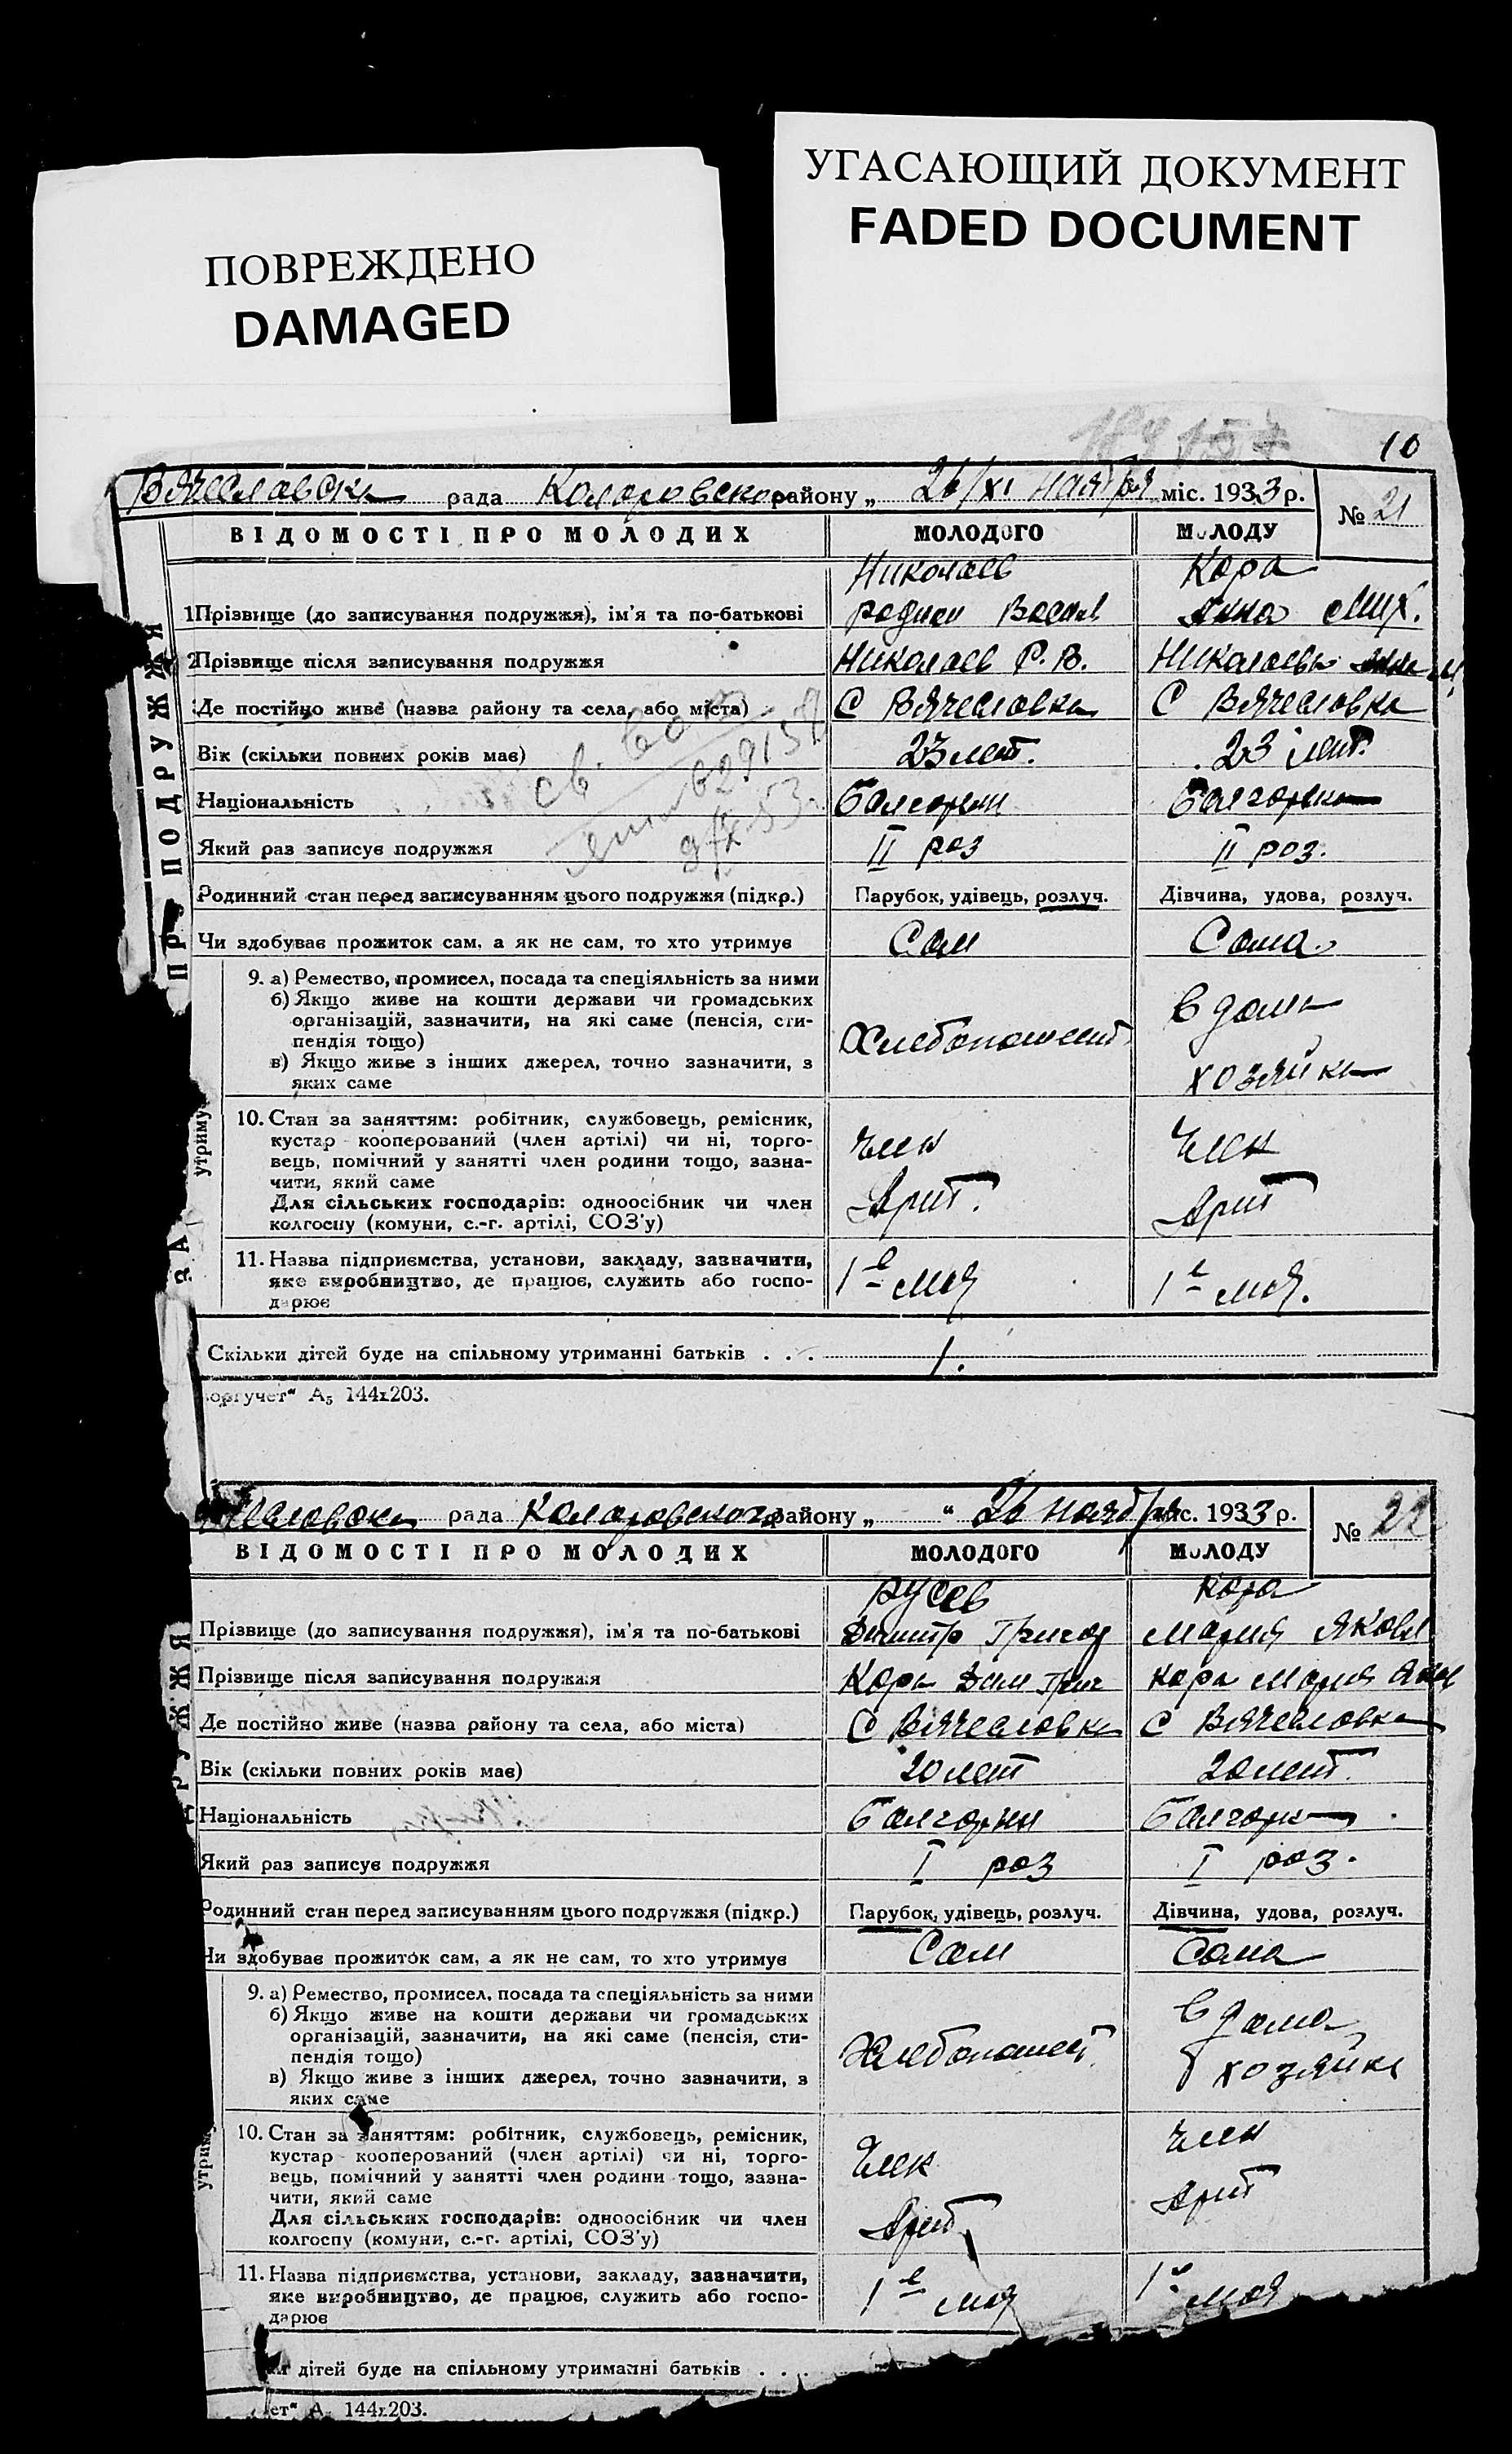 ПОВРЕЖДЕНО
DAMAGED
УГАСАЮЩИЙ ДОКУМЕНТ
FADED DOCUMENT
10
Вячеславска рада Коларовского району „ 26/XI ноября міс. 1933 р.
№ 21
ВІДОМОСТІ ПРО МОЛОДИХ МОЛОДОГО МОЛОДУ
Николаев Кора
1 Прізвище (до записування подружжя), ім'я та по-батькові Родион Васил Анна Мих.
2 Прізвище після записування подружжя Николаев Р. В. Николаева
Де постійно живе (назва району та села, або міста) С Вячеславка С Вячеславка
Вік (скільки повних років має) 23 лет. 23 лет.
Національність Болгарин Болгарка
Який раз записує подружжя II роз II роз.
Родинний стан перед записуванням цього подружжя (підкр.) Парубок, удівець, розлуч. Дівчина, удова, розлуч.
Чи здобуває прожиток сам, а як не сам, то хто утримує Сам Сама
9. а) Ремество, промисел, посада та спеціяльність за ними
б) Якщо живе на кошти держави чи громадських
організацій, зазначити, на які саме (пенсія, сти-
пендія тощо)
в) Якщо живе з інших джерел, точно зазначити, з
яких саме
Хлебопашест
в дома
хозяйка
10. Стан за заняттям: робітник, службовець, ремісник,
кустар кооперований (член артілі) чи ні, торго-
вець, помічний у занятті член родини тощо, зазна-
чити, який саме
Для сільських господарів: одноосібник чи член
колгоспу (комуни, с.-г. артілі, СОЗ'у)
член
Арт.
член
Арт
11. Назва підприємства, установи, закладу, зазначити,
яке виробництво, де працює, служить або госпо-
дарює
1е мая
1е мая.
Скільки дітей буде на спільному утриманні батьків . . . 1.
оргучет“ А5 144х203.
еславска рада Коларовского району „ “ 26 ноября міс. 1933 р.
№ 22
ВІДОМОСТІ ПРО МОЛОДИХ МОЛОДОГО МОЛОДУ
Русев Кора
Прізвище (до записування подружжя), ім'я та по-батькові Димитр Григор Мария Яковл
Прізвище після записування подружжя Кора Дим Григ Кора Мария Яков
Де постійно живе (назва району та села, або міста) С Вячеславка С Вячеславка
Вік (скільки повних років має) 20 лет 20 лет
Національність Болгарин Болгарка
Який раз записує подружжя I роз I роз.
Родинний стан перед записуванням цього подружжя (підкр.) Парубок, удівець, розлуч. Дівчина, удова, розлуч.
Чи здобуває прожиток сам, а як не сам, то хто утримує Сам Сама
9. а) Ремество, промисел, посада та спеціяльність за ними
б) Якщо живе на кошти держави чи громадських
організацій, зазначити, на які саме (пенсія, сти-
пендія тощо)
в) Якщо живе з інших джерел, точно зазначити, з
яких саме
Хлебопашест
в дома
хозяйка
10. Стан за заняттям: робітник, службовець, ремісник,
кустар кооперований (член артілі) чи ні, торго-
вець, помічний у занятті член родини тощо, зазна-
чити, який саме
Для сільських господарів: одноосібник чи член
колгоспу (комуни, с.-г. артілі, СОЗ'у)
член
Арт
член
Арт
11. Назва підприємства, установи, закладу, зазначити,
яке виробництво, де працює, служить або госпо-
дарює
1е мая
1е мая
дітей буде на спільному утриманні батьків . . .
ет“ А 144х203.